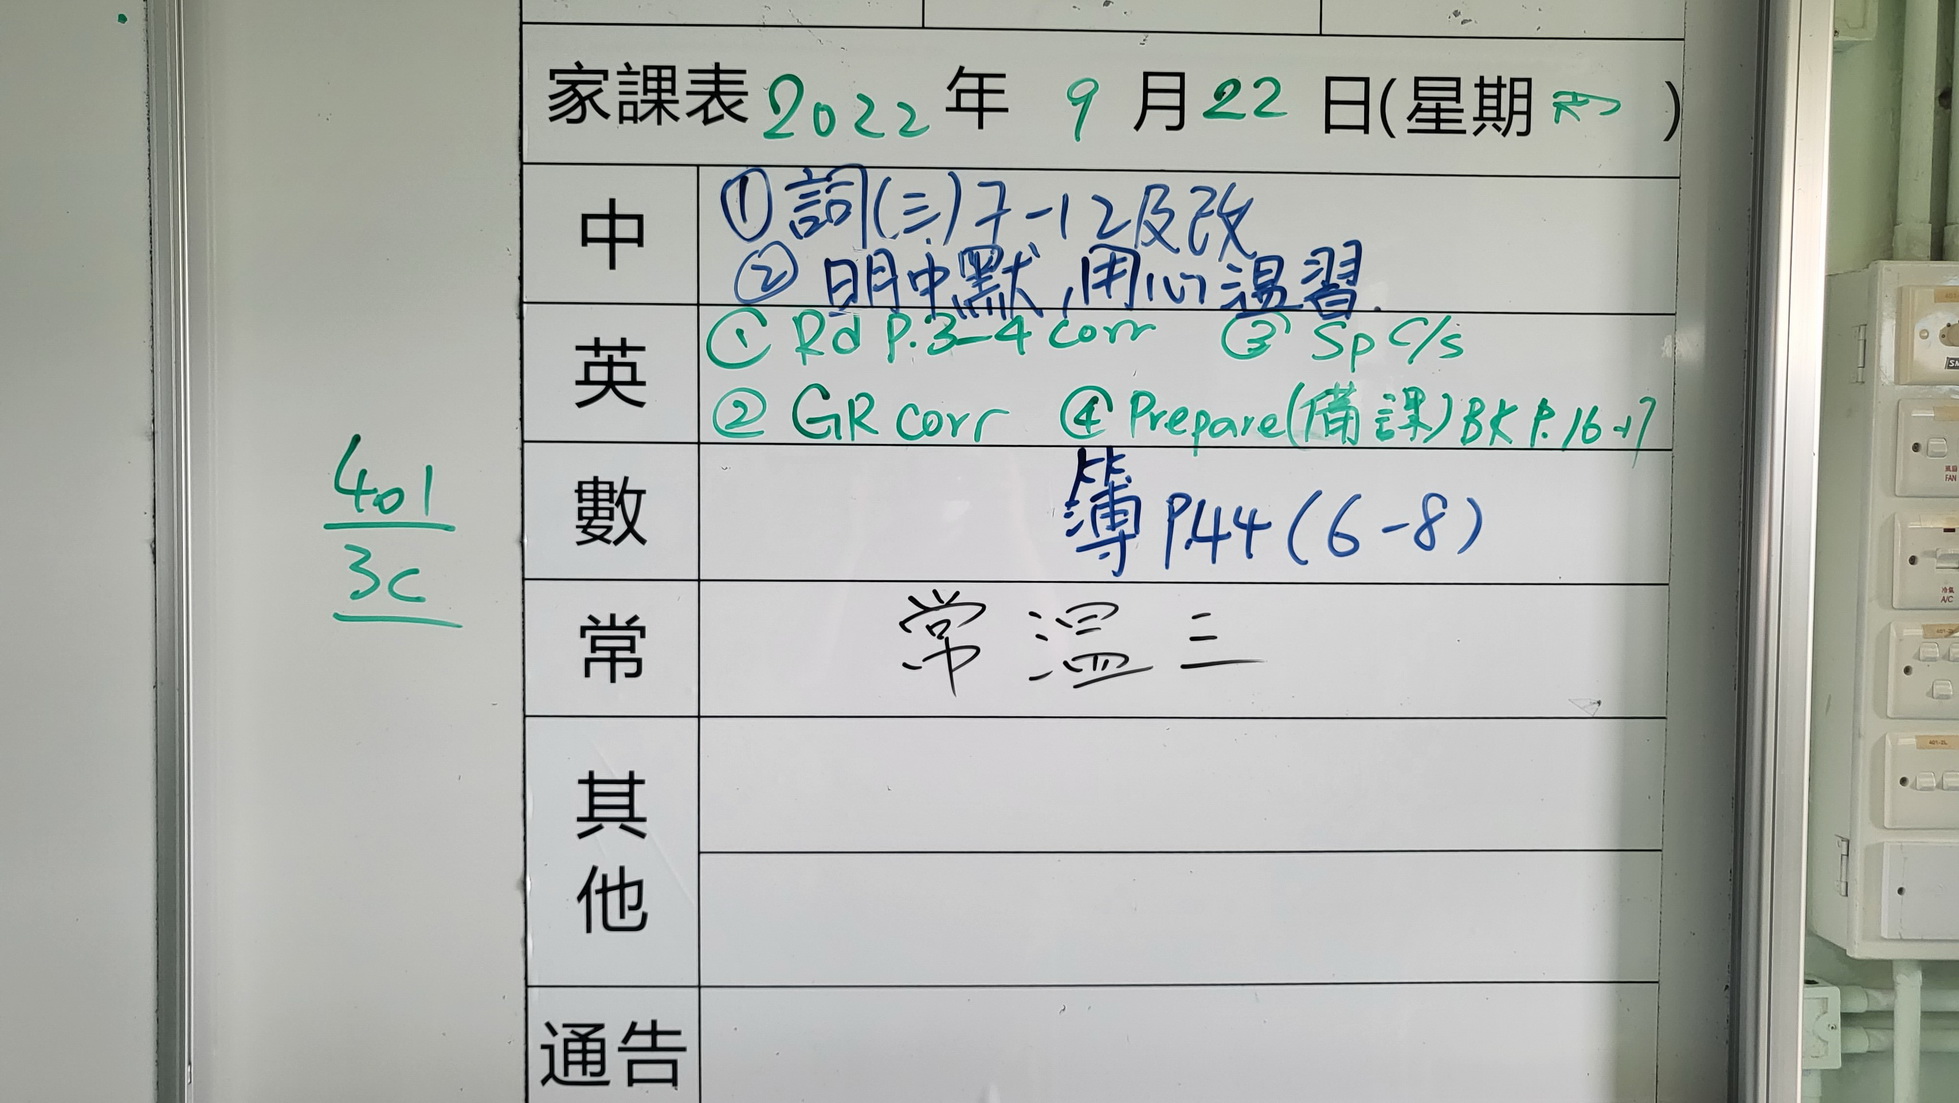 家課表 2022 年 9 月 22 日(星期四)
中
①詞(三)7-12及改
②明中默,用心温習.
英
① Rd P.3-4 corr ③ Sp C/s
② GR corr ④ Prepare(備課) BK P.16-17
401
數
簿 P.44 (6-8)
3C
常
常温三
其他
通告
FAN
A/C